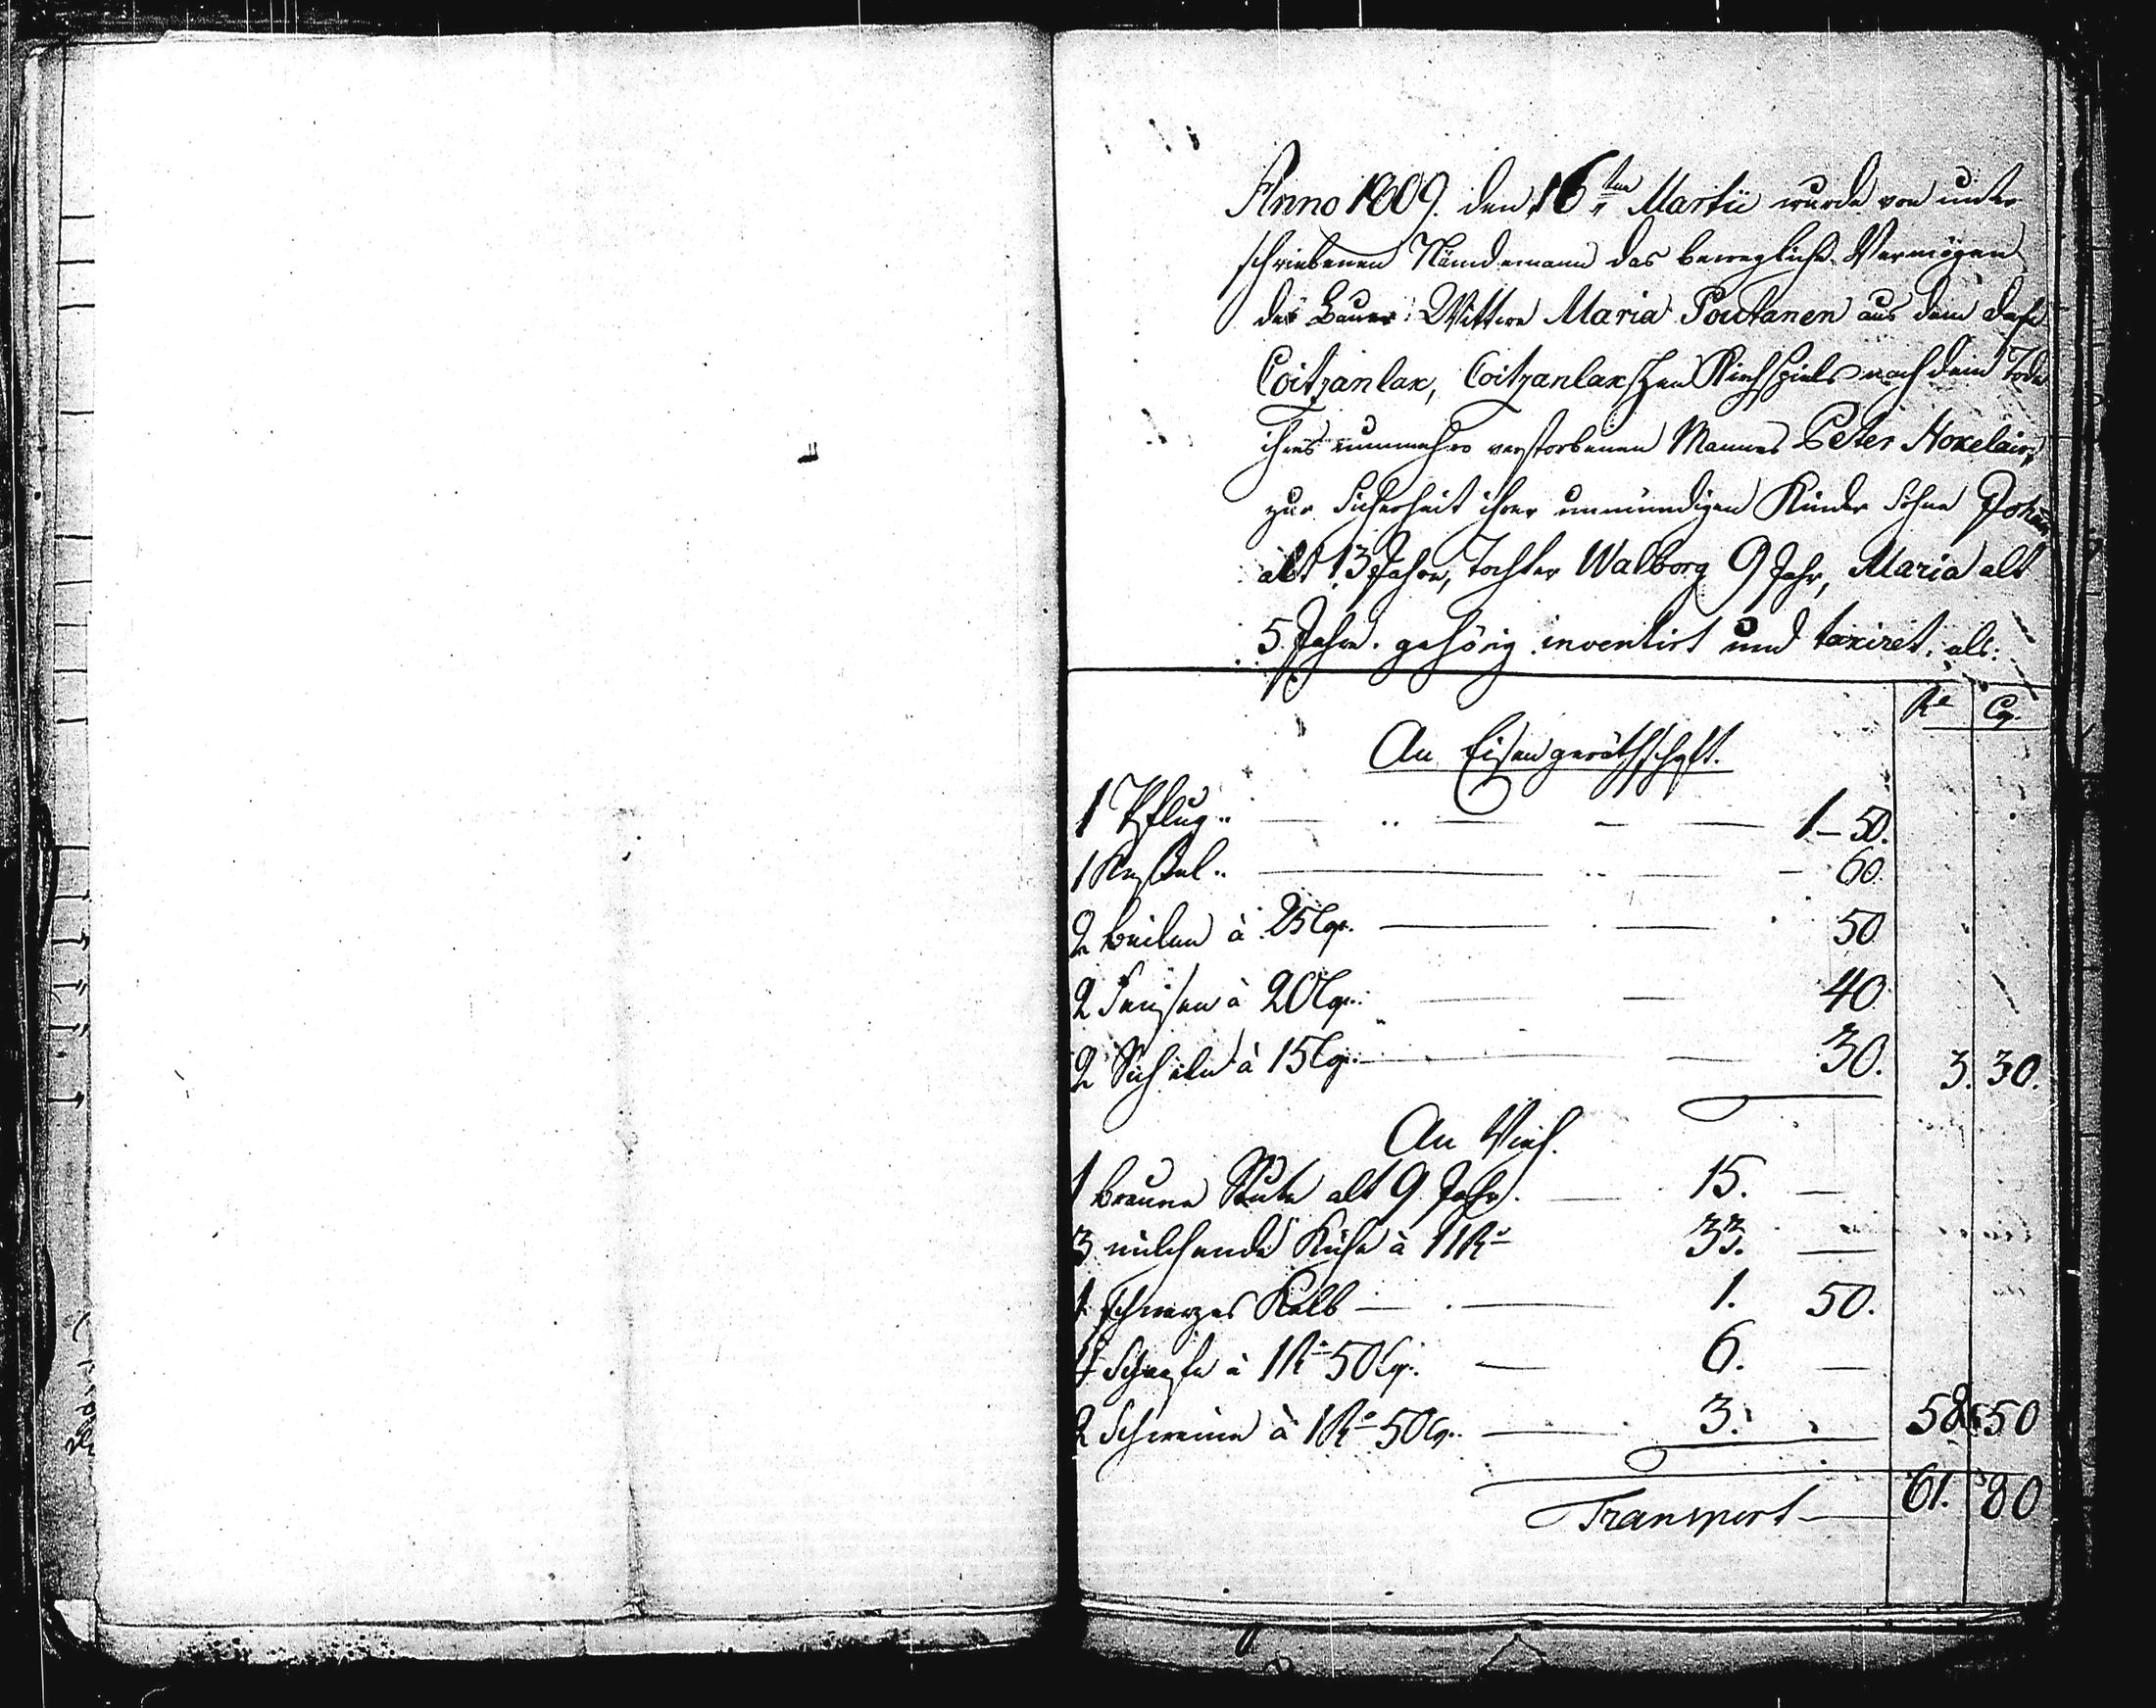 Anno 1809. den 16ten Martii wurde von unter
schriebenen Nämdemann das bewegliche Vermögen
der Bauer: Wittwe Maria Poutanen aus dem Dorfe
Coitzanlax, Coitzanlaxschen Kirchspiels nach dem Tode
ihres nunmehro verstorbenen Mannes Peter Hokelain,
zur Sicherheit ihrer unmündigen Kinder Sohne Johann
alt 13 Jahre, Tochter Walborg 9 Jahr, Maria alt
5 Jahre. gehörig inventirt und taxiret, als:
Rl Cop.
An Eisengeräthschaft.
1 Pflug 1 - 50.
1 Keßel 60.
2 Beilen à 25 Cop. 50
2 Sensen à 20 Cop. 40
2 Sicheln à 15 Cop. 30. 3. 30.
An Vieh.
1 braune Stute alt 9 Jahr. 15. —
3 milchende Kühe à 11 Rl 33. —
1 schwarzes Kalb 1. 50.
4 Schaafe à 1 Rl 50 Cop. 6. —
2 Schweine à 1 Rl 50 Cop. 3. 58 50
Transport 61. 80